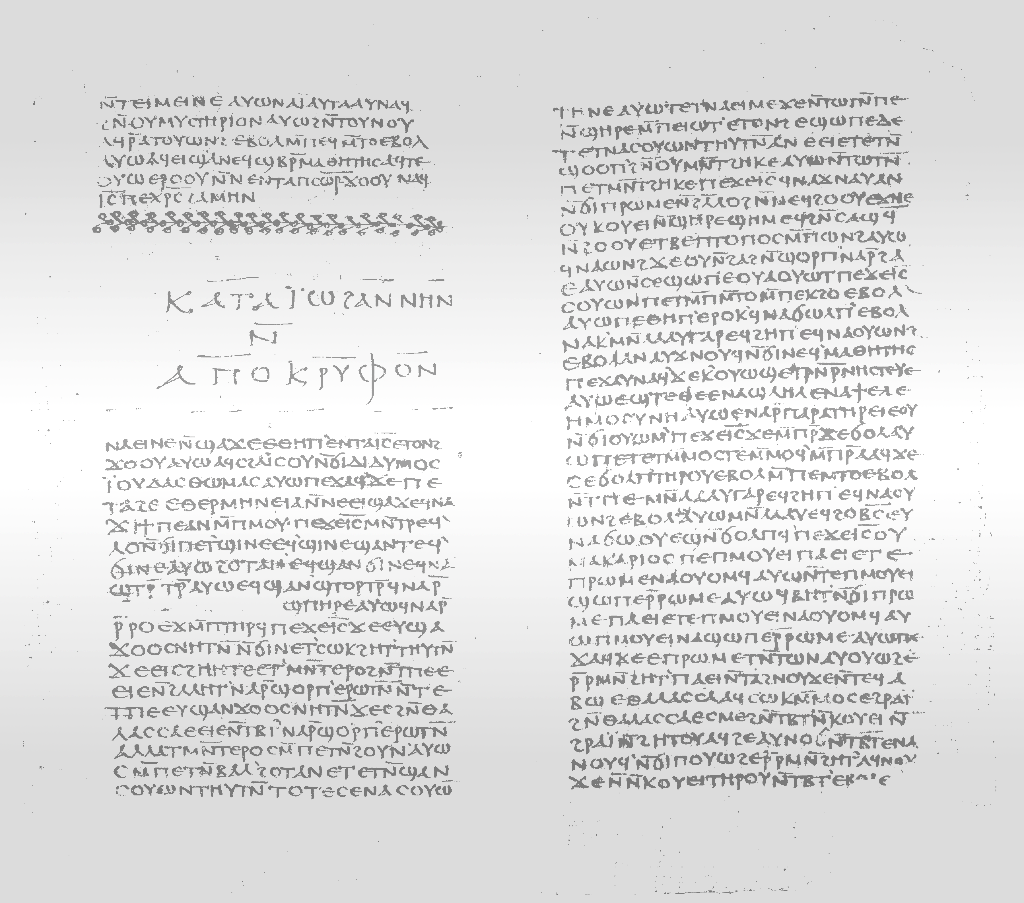 ⲛ̄ⲧⲉⲓⲙⲉⲓⲛⲉ ⲁⲩⲱ ⲛⲁⲓ̈ ⲁⲩⲧⲁⲁⲩ ⲛⲁϥ
ϩⲛ̄ ⲟⲩⲙⲩⲥⲧⲏⲣⲓⲟⲛ ⲁⲩⲱ ϩⲛ̄ ⲧⲟⲩⲛⲟⲩ
ⲁϥⲣ̄ⲁⲧⲟⲩⲱⲛϩ ⲉⲃⲟⲗ ⲙ̄ⲡⲉϥⲙ̄ⲧⲟ ⲉⲃⲟⲗ
ⲁⲩⲱ ⲁϥⲉⲓ ϣⲁ ⲛⲉϥϣⲃⲣ̄ⲙⲁⲑⲏⲧⲏⲥ ⲁϥⲧⲉ
ⲟⲩⲱ ⲉⲣⲟⲟⲩ ⲛ̄ⲛⲉⲛⲧⲁⲡⲥⲱⲣ̄ ϫⲟⲟⲩ ⲛⲁϥ
ⲓ̅ⲥ̅ ⲡⲉⲭ̅ⲣ̅ⲥ̅ ϩⲁⲙⲏⲛ
ⲕⲁⲧⲁ ⲓ̈ⲱϩⲁⲛⲛⲏⲛ
ⲛ̄
ⲁⲡⲟⲕⲣⲩⲫⲟⲛ
ⲛⲁⲉⲓ ⲛⲉ ⲛ̄ϣⲁϫⲉ ⲉⲑⲏⲡ ⲉⲛⲧⲁⲓ̅ⲥ̅ ⲉⲧⲟⲛϩ
ϫⲟⲟⲩ ⲁⲩⲱ ⲁϥⲥϩⲁⲓⲥⲟⲩ ⲛ̄ϭⲓ ⲇⲓⲇⲩⲙⲟⲥ
ⲓ̈ⲟⲩⲇⲁⲥ ⲑⲱⲙⲁⲥ ⲁⲩⲱ ⲡⲉϫⲁϥ ϫⲉ ⲡⲉ
ⲧⲁϩⲉ ⲉⲑⲉⲣⲙⲏⲛⲉⲓⲁ ⲛ̄ⲛⲉⲉⲓϣⲁϫⲉ ϥⲛⲁ
ϫⲓ ϯⲡⲉ ⲁⲛ ⲙ̄ⲡⲙⲟⲩ ⲡⲉϫⲉ ⲓ̅ⲥ̅ ⲙⲛ̄ⲧⲣⲉϥ
ⲗⲟ ⲛ̄ϭⲓ ⲡⲉⲧϣⲓⲛⲉ ⲉϥϣⲓⲛⲉ ϣⲁⲛⲧⲉϥ
ϭⲓⲛⲉ ⲁⲩⲱ ϩⲟⲧⲁⲛ ⲉϥϣⲁⲛϭⲓⲛⲉ ϥⲛⲁ
ϣⲧⲣ̄ⲧⲣ̄ ⲁⲩⲱ ⲉϥϣⲁⲛϣⲧⲟⲣⲧⲣ̄ ϥⲛⲁⲣ̄
ϣⲡⲏⲣⲉ ⲁⲩⲱ ϥⲛⲁⲣ̄
ⲣ̄ⲣⲟ ⲉϫⲙ̄ ⲡⲧⲏⲣϥ ⲡⲉϫⲉ ⲓ̅ⲥ̅ ϫⲉ ⲉⲩϣⲁ
ϫⲟⲟⲥ ⲛⲏⲧⲛ̄ ⲛ̄ϭⲓ ⲛⲉⲧⲥⲱⲕ ϩⲏⲧ ⲑⲏⲩⲧⲛ̄
ϫⲉ ⲉⲓⲥϩⲏⲏⲧⲉ ⲉⲧⲙⲛ̄ⲧⲉⲣⲟ ϩⲛ̄ ⲧⲡⲉ ⲉ
ⲉⲓⲉ ⲛ̄ϩⲁⲗⲏⲧ ⲛⲁⲣ̄ ϣⲟⲣⲡ ⲉⲣⲱⲧⲛ̄ ⲛ̄ⲧⲉ
ⲧⲡⲉ ⲉⲩϣⲁⲛϫⲟⲟⲥ ⲛⲏⲧⲛ̄ ϫⲉ ⲥϩⲛ̄ ⲑⲁ
ⲗⲁⲥⲥⲁ ⲉⲉⲓⲉ ⲛ̄ⲧⲃⲧ ⲛⲁⲣ̄ ϣⲟⲣⲡ ⲉⲣⲱⲧⲛ̄
ⲁⲗⲗⲁ ⲧⲙⲛ̄ⲧⲉⲣⲟ ⲥⲙ̄ⲡⲉⲧⲛ̄ϩⲟⲩⲛ ⲁⲩⲱ
ⲥⲙ̄ⲡⲉⲧⲛ̄ⲃⲁⲗ ϩⲟⲧⲁⲛ ⲉⲧⲉⲧⲛ̄ϣⲁⲛ
ⲥⲟⲩⲱⲛ ⲑⲏⲩⲧⲛ̄ ⲧⲟⲧⲉ ⲥⲉⲛⲁⲥⲟⲩⲱ
ⲧⲏⲛⲉ ⲁⲩⲱ ⲧⲉⲧⲛⲁⲉⲓⲙⲉ ϫⲉ ⲛ̄ⲧⲱⲧⲛ̄ ⲡⲉ
ⲛ̄ϣⲏⲣⲉ ⲙ̄ⲡⲉⲓⲱⲧ ⲉⲧⲟⲛϩ ⲉϣⲱⲡⲉ ⲇⲉ
ⲧⲉⲧⲛⲁⲥⲟⲩⲱⲛ ⲑⲏⲩⲧⲛ̄ ⲁⲛ ⲉⲉⲓⲉ ⲧⲉⲧⲛ̄
ϣⲟⲟⲡ ϩⲛ̄ ⲟⲩⲙⲛ̄ⲧϩⲏⲕⲉ ⲁⲩⲱ ⲛ̄ⲧⲱⲧⲛ̄
ⲡⲉ ⲧⲙⲛ̄ⲧϩⲏⲕⲉ ⲡⲉϫⲉ ⲓ̅ⲥ̅ ϥⲛⲁϫⲛⲁⲩ ⲁⲛ
ⲛ̄ϭⲓ ⲡⲣⲱⲙⲉ ⲛ̄ϩⲗ̄ⲗⲟ ϩⲛ̄ ⲛⲉϥϩⲟⲟⲩ ⲉϫⲛⲉ
ⲟⲩⲕⲟⲩⲉⲓ ⲛ̄ϣⲏⲣⲉ ϣⲏⲙ ⲉϥϩⲛ̄ ⲥⲁϣϥ̄
ⲛ̄ϩⲟⲟⲩ ⲉⲧⲃⲉ ⲡⲧⲟⲡⲟⲥ ⲙ̄ⲡⲱⲛϩ ⲁⲩⲱ
ϥⲛⲁⲱⲛϩ ϫⲉ ⲟⲩⲛ̄ ϩⲁϩ ⲛ̄ϣⲟⲣⲡ ⲛⲁⲣ̄ ϩⲁ
ⲉ ⲁⲩⲱ ⲛ̄ⲥⲉϣⲱⲡⲉ ⲟⲩⲁ ⲟⲩⲱⲧ ⲡⲉϫⲉ ⲓ̅ⲥ̅
ⲥⲟⲩⲱⲛ ⲡⲉⲧⲙ̄ⲡⲙ̄ⲧⲟ ⲙ̄ⲡⲉⲕϩⲟ ⲉⲃⲟⲗ
ⲁⲩⲱ ⲡⲉⲑⲏⲡ ⲉⲣⲟⲕ ϥⲛⲁϭⲱⲗⲡ ⲉⲃⲟⲗ
ⲛⲁⲕ ⲙⲛ̄ ⲗⲁⲁⲩ ⲅⲁⲣ ⲉϥϩⲏⲡ ⲉϥⲛⲁⲟⲩⲱⲛϩ
ⲉⲃⲟⲗ ⲁⲛ ⲁⲩϫⲛⲟⲩϥ ⲛ̄ϭⲓ ⲛⲉϥⲙⲁⲑⲏⲧⲏⲥ
ⲡⲉϫⲁⲩ ⲛⲁϥ ϫⲉ ⲕⲟⲩⲱϣ ⲉⲧⲣⲛ̄ⲣ̄ⲛⲏⲥⲧⲉⲩⲉ
ⲁⲩⲱ ⲉϣ ⲧⲉ ⲑⲉ ⲉⲛⲁϣⲗⲏⲗ ⲉⲛⲁϯ ⲉⲗⲉ
ⲏⲙⲟⲥⲩⲛⲏ ⲁⲩⲱ ⲉⲛⲁⲣ̄ⲡⲁⲣⲁⲧⲏⲣⲉⲓ ⲉⲟⲩ
ⲛ̄ϭⲓⲟⲩⲱⲙ ⲡⲉϫⲉ ⲓ̅ⲥ̅ ϫⲉ ⲙ̄ⲡⲣ̄ϫⲉ ϭⲟⲗ ⲁⲩ
ⲱ ⲡⲉⲧⲉⲧⲙ̄ⲙⲟⲥⲧⲉ ⲙ̄ⲙⲟϥ ⲙ̄ⲡⲣ̄ⲁⲁϥ ϫⲉ
ⲥⲉϭⲟⲗⲡ ⲧⲏⲣⲟⲩ ⲉⲃⲟⲗ ⲙ̄ⲡⲉⲙⲧⲟ ⲉⲃⲟⲗ
ⲛ̄ⲧⲡⲉ ⲙⲛ̄ ⲗⲁⲁⲩ ⲅⲁⲣ ⲉϥϩⲏⲡ ⲉϥⲛⲁⲟⲩ
ⲱⲛϩ ⲉⲃⲟⲗ ⲁⲛ ⲁⲩⲱ ⲙⲛ̄ ⲗⲁⲁⲩ ⲉϥϩⲟⲃ̄ⲥ ⲉⲩ
ⲛⲁϭⲱ ⲟⲩⲉϣⲛ̄ ϭⲟⲗⲡϥ ⲡⲉϫⲉ ⲓ̅ⲥ̅ ⲟⲩ
ⲙⲁⲕⲁⲣⲓⲟⲥ ⲡⲉ ⲡⲙⲟⲩⲉⲓ ⲡⲁⲉⲓ ⲉⲧⲉ
ⲡⲣⲱⲙⲉ ⲛⲁⲟⲩⲟⲙϥ ⲁⲩⲱ ⲛ̄ⲧⲉ ⲡⲙⲟⲩⲉⲓ
ϣⲱⲡⲉ ⲣ̄ⲣⲱⲙⲉ ⲁⲩⲱ ϥⲃⲏⲧ ⲛ̄ϭⲓ ⲡⲣⲱ
ⲙⲉ ⲡⲁⲉⲓ ⲉⲧⲉ ⲡⲙⲟⲩⲉⲓ ⲛⲁⲟⲩⲟⲙϥ ⲁⲩ
ⲱ ⲡⲙⲟⲩⲉⲓ ⲛⲁϣⲱⲡⲉ ⲣ̄ⲣⲱⲙⲉ ⲁⲩⲱ ⲡⲉ
ϫⲁϥ ϫⲉ ⲉⲡⲣⲱⲙⲉ ⲧⲛ̄ⲧⲱⲛ ⲁⲩⲟⲩⲱϩⲉ
ⲣ̄ⲣⲙⲛ̄ϩⲏⲧ ⲡⲁⲉⲓ ⲛ̄ⲧⲁϩⲛⲟⲩϫⲉ ⲛ̄ⲧⲉϥⲁ
ⲃⲱ ⲉⲑⲁⲗⲁⲥⲥⲁ ⲁϥⲥⲱⲕ ⲙ̄ⲙⲟⲥ ⲉϩⲣⲁⲓ̈
ϩⲛ̄ ⲑⲁⲗⲁⲥⲥⲁ ⲉⲥⲙⲉϩ ⲛ̄ⲧⲃⲧ ⲛ̄ⲕⲟⲩⲉⲓ ⲛ̄
ϩⲣⲁⲓ̈ ⲛ̄ϩⲏⲧⲟⲩ ⲁϥϩⲉ ⲁⲩⲛⲟϭ ⲛ̄ⲧⲃⲧ ⲉⲛⲁ
ⲛⲟⲩϥ ⲛ̄ϭⲓ ⲡⲟⲩⲱϩⲉ ⲣ̄ⲣⲙⲛ̄ϩⲏⲧ ⲁϥⲛⲟⲩ
ϫⲉ ⲛ̄ⲛⲕⲟⲩⲉⲓ ⲧⲏⲣⲟⲩ ⲛ̄ⲧⲃⲧ ⲉⲃ ⲉ